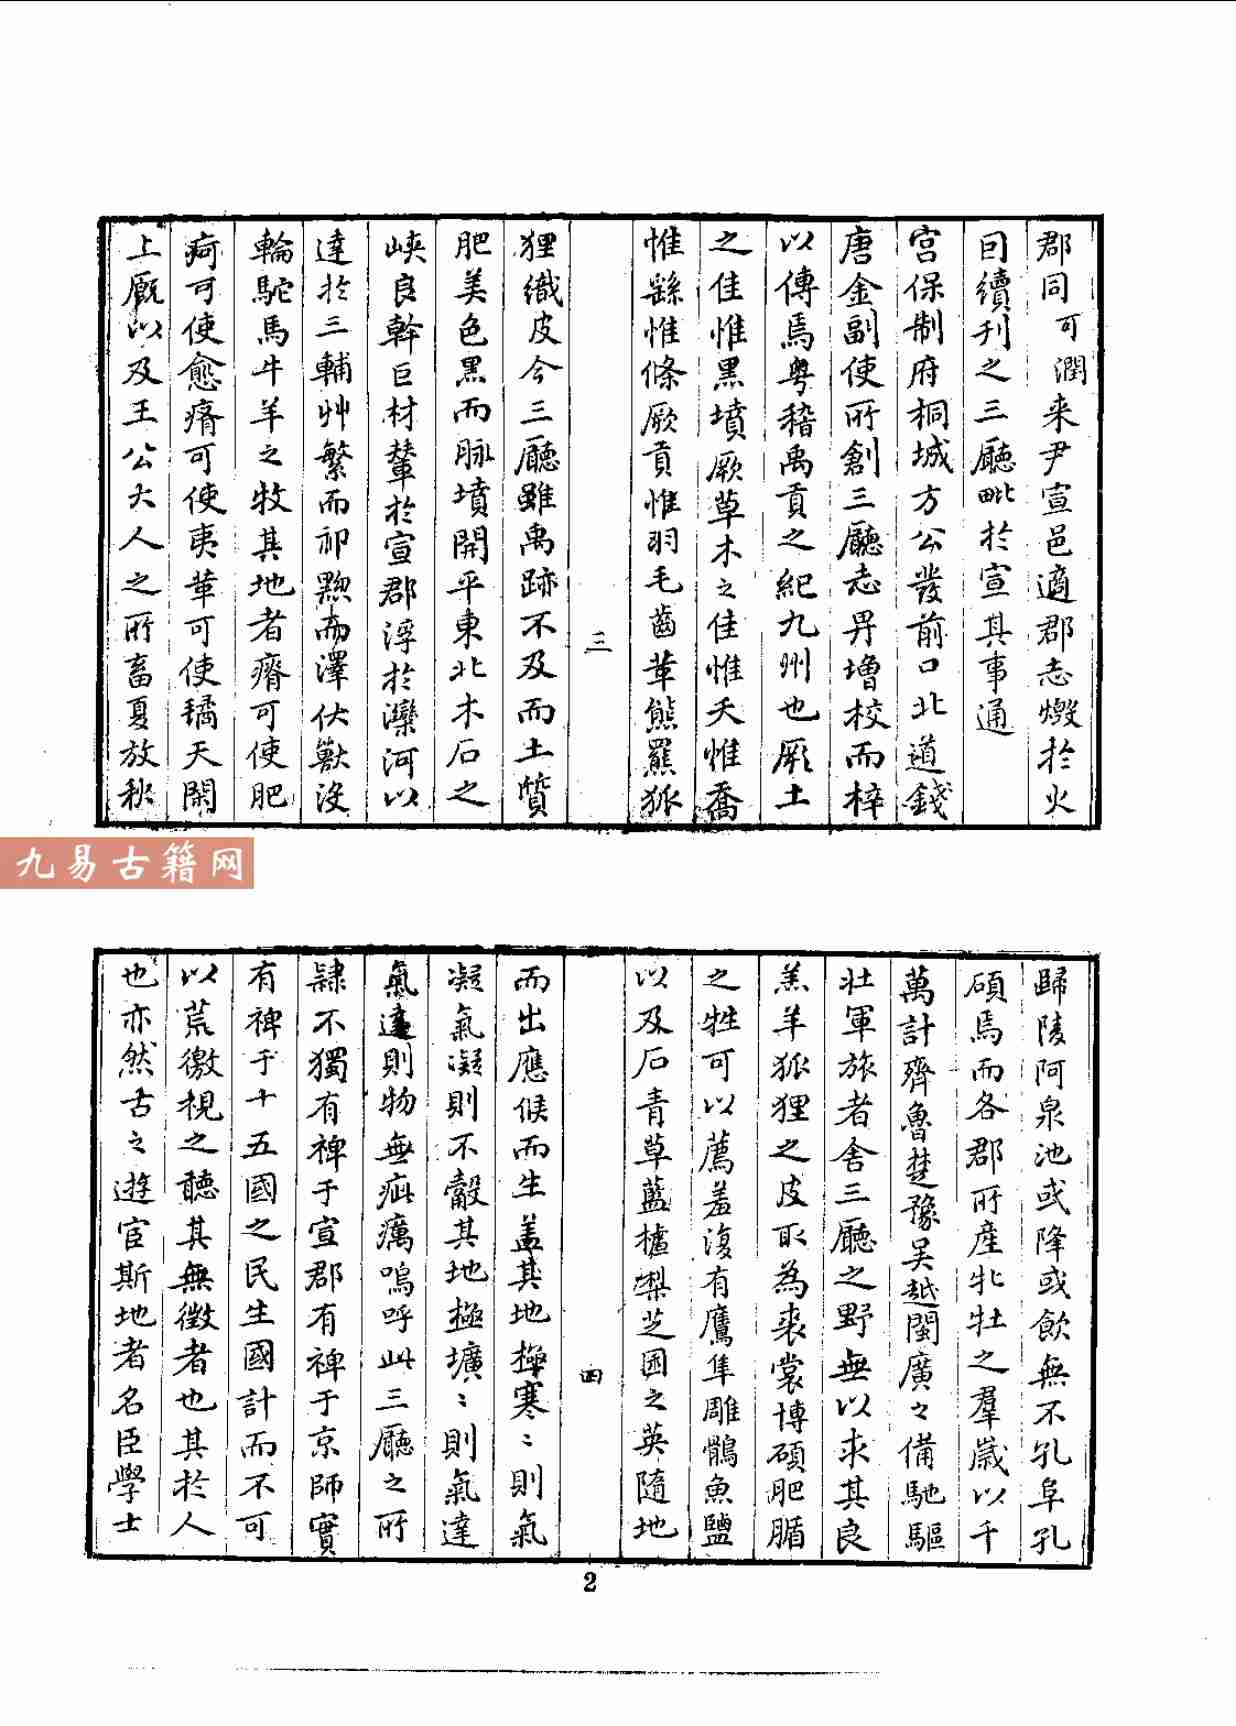 郡同可潤来尹宣邑適郡志燬於火
回續刋之三廳毗於宣其事通
宮保制府桐城方公發前口北道錢
唐金副使所創三廳志畀增校而梓
以傳焉粤稽禹貢之紀九州也厥土
之佳惟黒墳厥草木之佳惟夭惟喬
惟繇惟條厥貢惟羽毛齒革熊羆狐
三
狸織皮今三廳雖禹跡不及而土質
肥美色黒而脉墳開平東北木石之
峽良幹巨材輦於宣郡浮於灤河以
達於三輔艸繁而祁䵣而澤伏獸没
輪駝馬牛羊之牧其地者瘠可使肥
疴可使愈瘠可使夷華可使驈天閑
上廐以及王公大人之所畜夏放秋
歸陵阿泉池或降或飲無不孔阜孔
碩焉而各郡所産牝牡之羣嵗以千
萬計齊魯楚豫吴越閩廣之備馳驅
壯軍旅者舍三廳之野無以求其良
羔羊狐狸之皮取為裘裳博碩肥腯
之牲可以薦羞復有鷹隼雕鶻魚鹽
以及石青草藍櫨梨芝菌之英隨地
四
而出應候而生盖其地極寒〻則氣
凝氣凝則不㱿其地極壙〻則氣達
氣達則物無疵癘嗚呼此三廳之所
隷不獨有禆于宣郡有禆于京師實
有禆于十五國之民生國計而不可
以荒徼視之聽其無徴者也其於人
也亦然古之遊宦斯地者名臣學士
2
九易古籍网